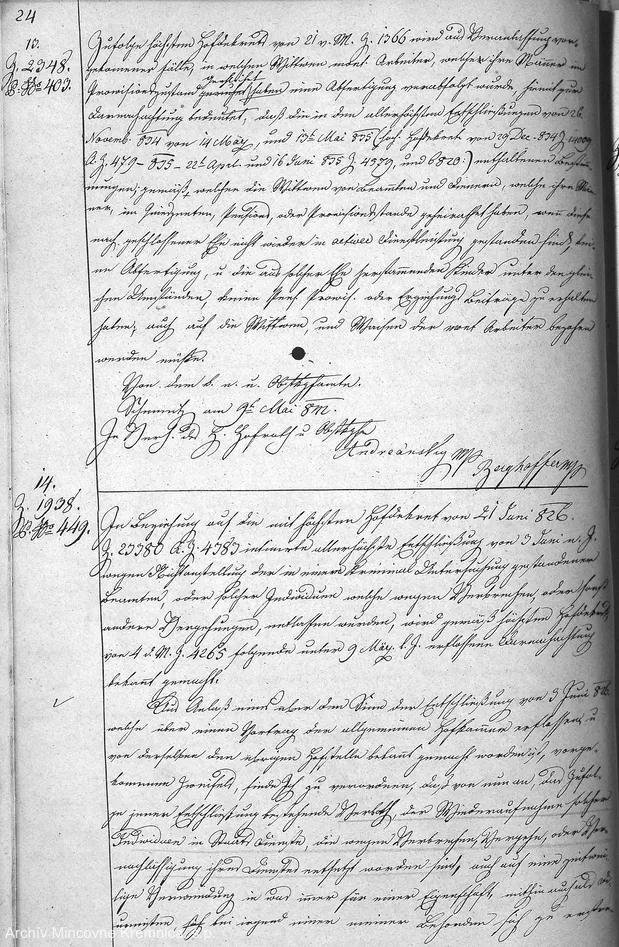 24
13.
Z. 2348.
B. No 403.
Zufolge höchsten Hofdekrets von 21 v. M. Z. 1366 wird aus Veranlassung vor-
gekommener Fälle, in welchen Wittwen von Arbeiter, welche ihre Männer im
Provisionsstand geehelicht haben eine Abfertigung verabfolgt wurde, hiemit zur
Darnachachtung bedeutet, daß die in den allerhöchsten Entschließungen von 26.
Novemb. 834 von 14 März, und 13ten Mai 835 (höch. Hofdekret von 29 Dez. 834 Z 14009
Z. 479 – 835 – 22ten April und 16 Juni 835 Z 4379, und 6820.) enthaltenen Bestim-
mungen, gemäß welchen die Wittwen von Beamten und Dienern, welche ihre Män-
ner, im Quieszenten, Pensions, oder Provisionsstande geheirathet haben, wenn diese
nach geschlossener Ehe nicht wieder in activer Dienstleistung gestanden sind, kei-
ne Abfertigung, u die aus solcher Ehe herstammenden Kinder unter den glei-
chen Umständen, keine Provis. oder Erziehungs Beiträge zu erhalten
haben, auch auf die Wittwen, und Waisen der Arbeiter bezogen
werden müsse.
Von dem k. u. u. Obstkgfamte.
Schemnitz am 9t Mai
In Verh. des H. Hofrath u Obstkgf
Andreánsky
Berghoffer
14.
Z. 1938.
B. No 449.
In Beziehung auf die mit höchsten Hofdekret von 21 Juni 826.
Z. 23380 4383 intimirte allerhöchste Entschließung von 3 Juni n. J.
wegen Nichtanstellung der in einer Kriminal Untersuchung gestandenen
Beamten, oder solcher Individuen welche wegen Verbrechen, oder sonst
andere Vergehungen, entlassen wurden, wird gemäß höchsten Hofdekrets
von 4 d. M. Z. 4265 folgende unter 9 März l. J. erflossene Darnachachtung
bekannt gemacht.
Aus Anlaß eines über den Sinn der Entschließung von 3 Juni 826
welche über einen Vortrag der allgemeinen Hofkammer erflossen, u
von derselben den übrigen Hofstellen bekannt gemacht worden ist, vorge-
kommenen Zweifels, finde Ich zu verordnen, daß von nun an, das Zufol-
ge jener Entschließung bestehende Verboth, der Wiederaufnahme solcher
Individuen in Staats Dienste, die wegen Verbrechen, Vergehen, oder Ver-
nachläßigung ihres Dienstes entsetzt worden sind, auch auf eine zeitwei-
lige Verwendung in was immer für einer Eigenschaft, mithin auch als
bei irgend einer meiner Behörden sich zu erstre-
Archív Mincovne Kremnica, š.p.